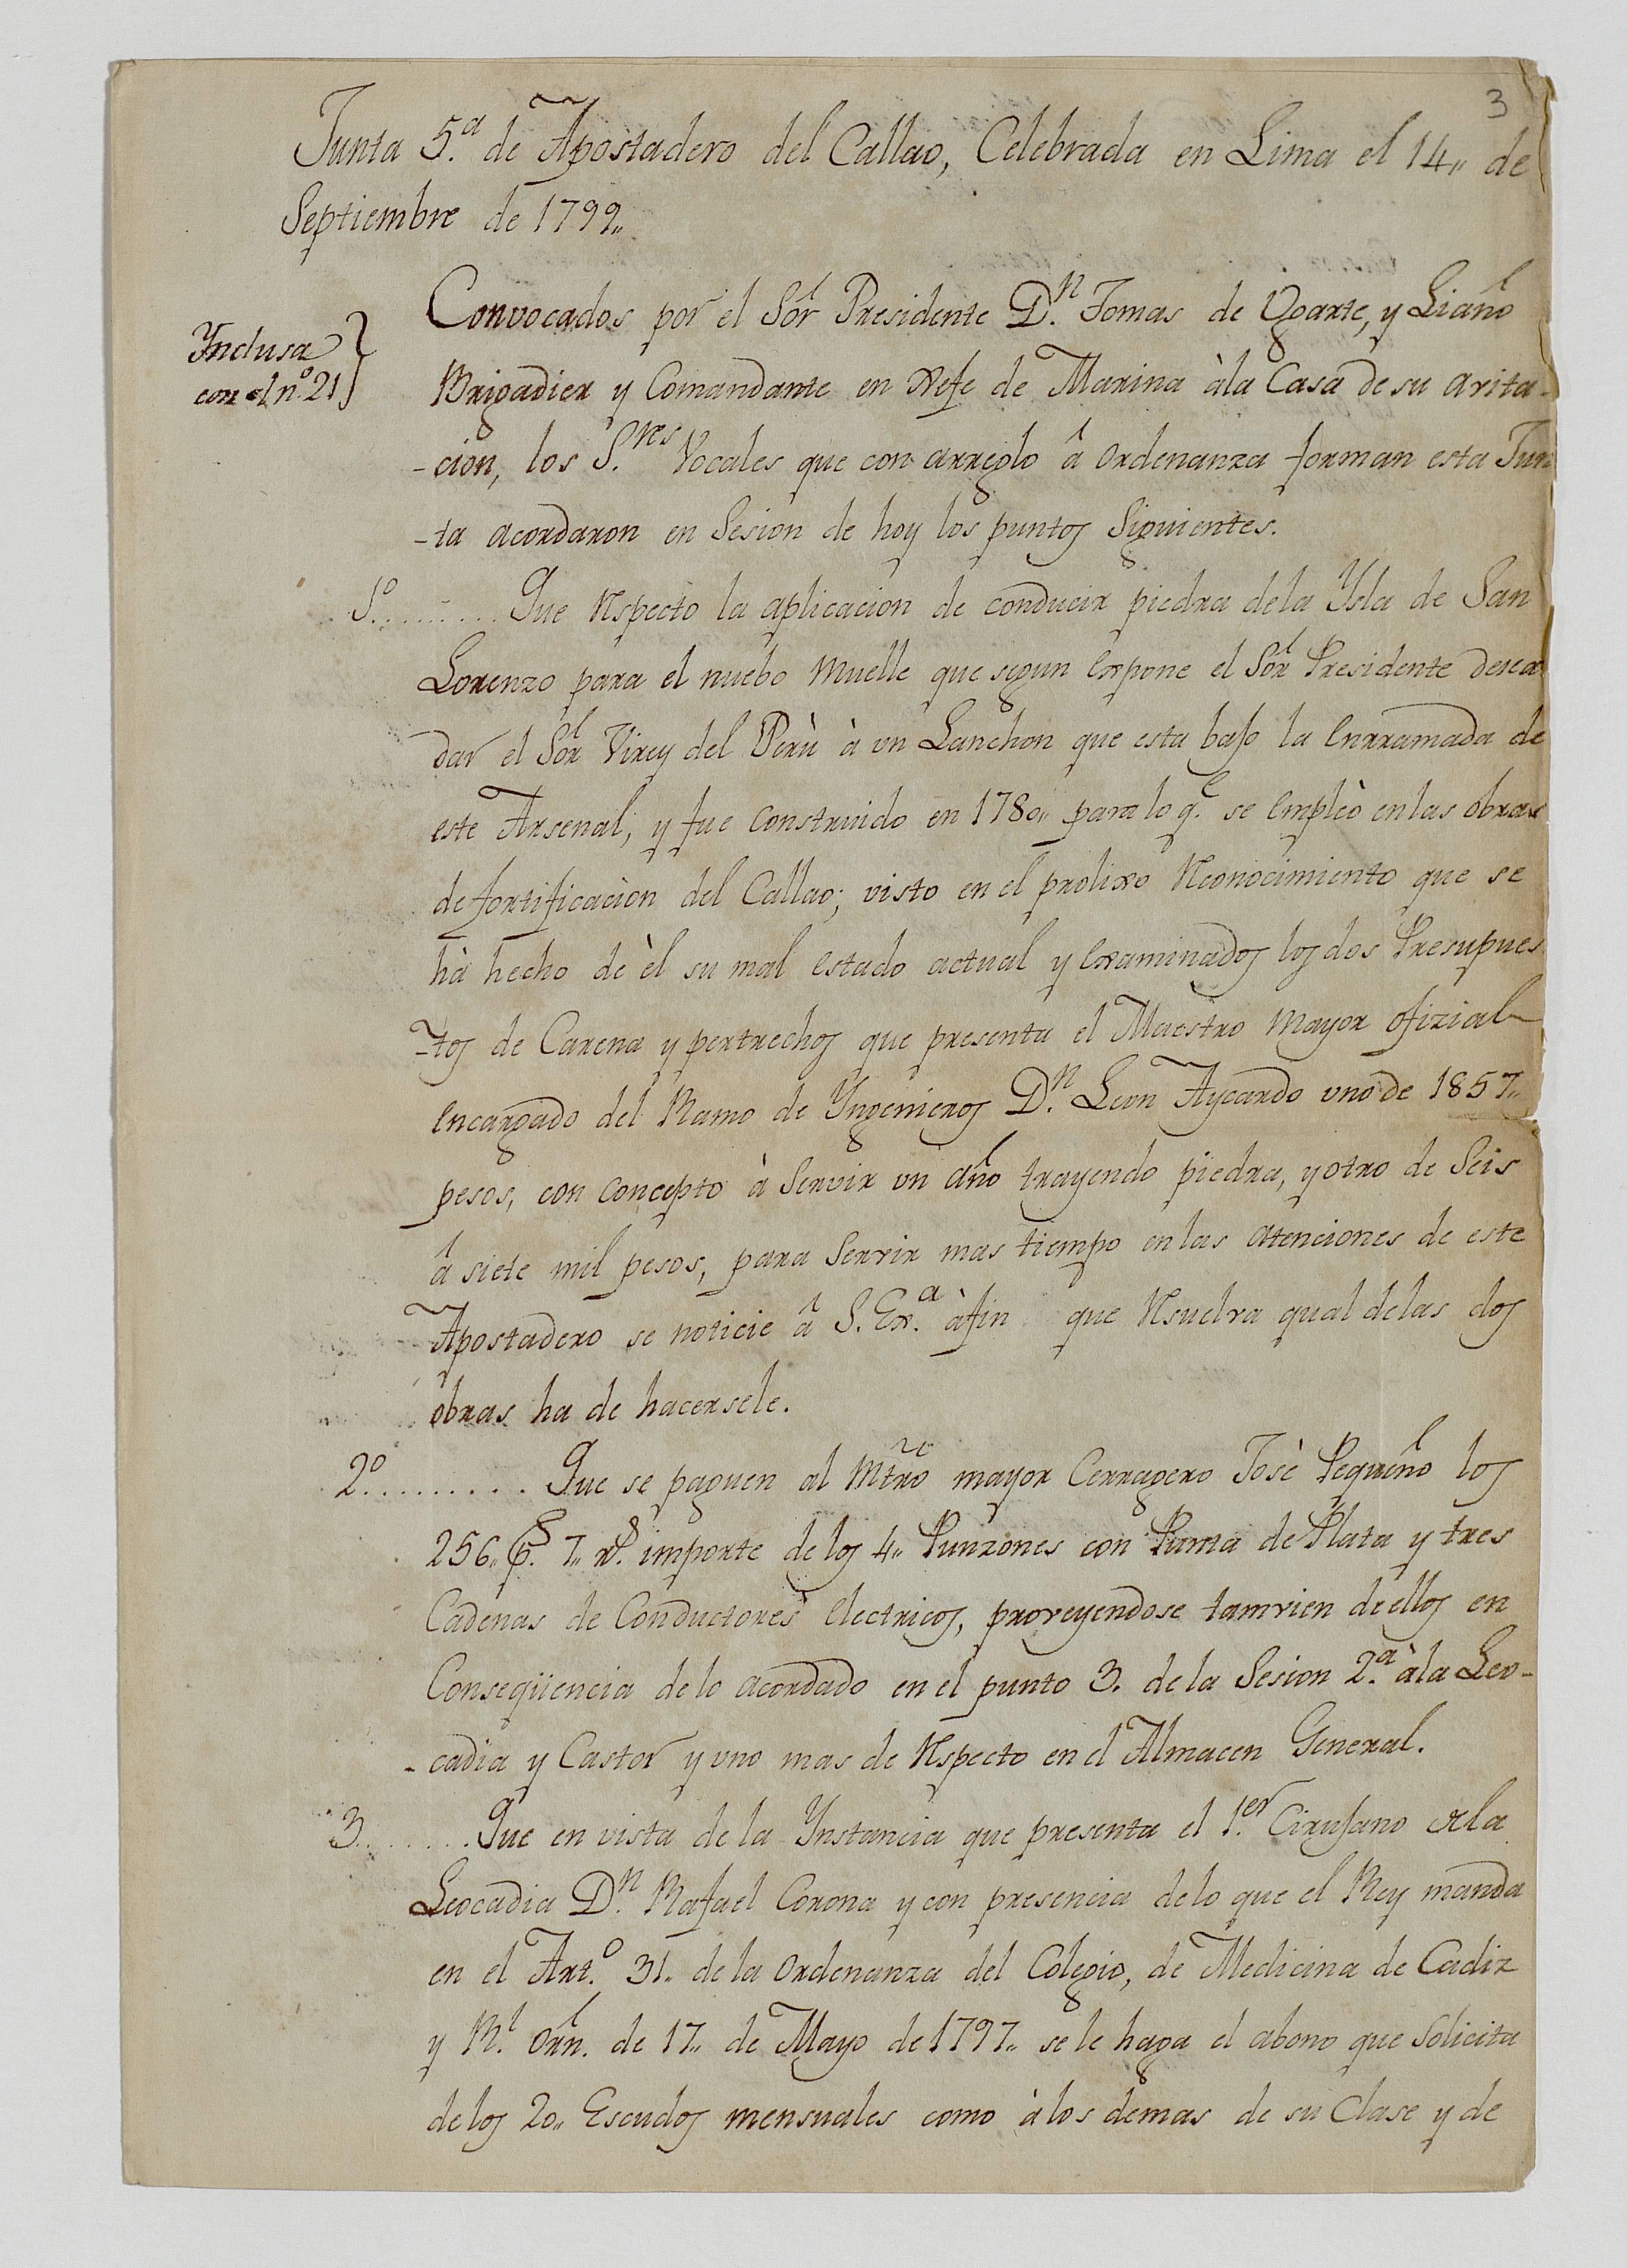 3
Junta 5.ª de Apostadero del Callao, Celebrada en Lima el 14,, de
Septiembre de 1799,,
Ynclusa
con el nº 21
Convocados por el Sõr Presidente D.n Tomas de Vgarte, y Liaño
Brigadier y Comandante en Xefe de Marina àla Casa de su avita-
-cion, los S.res Vocales que con arreglo â Ordenanza forman esta Jun
-ta acordaron en Sesion de hoy los puntos Siguientes.
1º......... Que Respecto la aplicacion de conducir piedra dela Ysla de San
Lorenzo para el nuebo Muelle que segun Expone el Sõr Presidente desea
dar el Sõr Virey del Perù à un Lanchon que esta bajo la Enrramada de
este Arsenal, y fue Construido en 1780,, para lo q.e se Empleò en las obras
de fortificaciòn del Callao; visto en el prolixo Reconocimiento que se
hà hecho dè èl su mal Estado actual y Examinados los dos Presupues
-tos de Carena y pertrechos que presenta el Maestro Mayor ofizial
Encargado del Ramo de Yngenieros D.n Leon Aycardo uno de 1857,,
pesos, con Concepto à Servir un año trayendo piedra, y otro de Seis
â siete mil pesos, para Servir mas tiempo en las atenciones de este
Apostadero se noticie â S. Ex.a àfin que Resuelva qual delas dos
obras ha de hacersele.
2º......... Que se paguen al Mtrõ mayor Cerragero Josè Pequeño los
256,, p.s 7,, r.s importe de los 4,, Punzones con Punta de Plata y tres
Cadenas de Conductores Electricos, proveyendose tamvien de ellos en
Conseqüencia de lo acordado en el punto 3. de la Sesion 2.ª àla Leo-
-cadia y Castor y uno mas de Respecto en el Almacen General.
3....... Que en vista de la Ynstancia que presenta el 1.er Cirujano dela
Leocadia D.n Rafael Corona y con presencia delo que el Rey manda
en el Art.o 31,, de la Ordenanza del Colegio, de Medicina de Cadiz
y R.l Orñ. de 17,, de Mayo de 1797,, se le haga el abono que Solicita
delos 20,, Escudos mensuales como àlos demas de su Clase y de